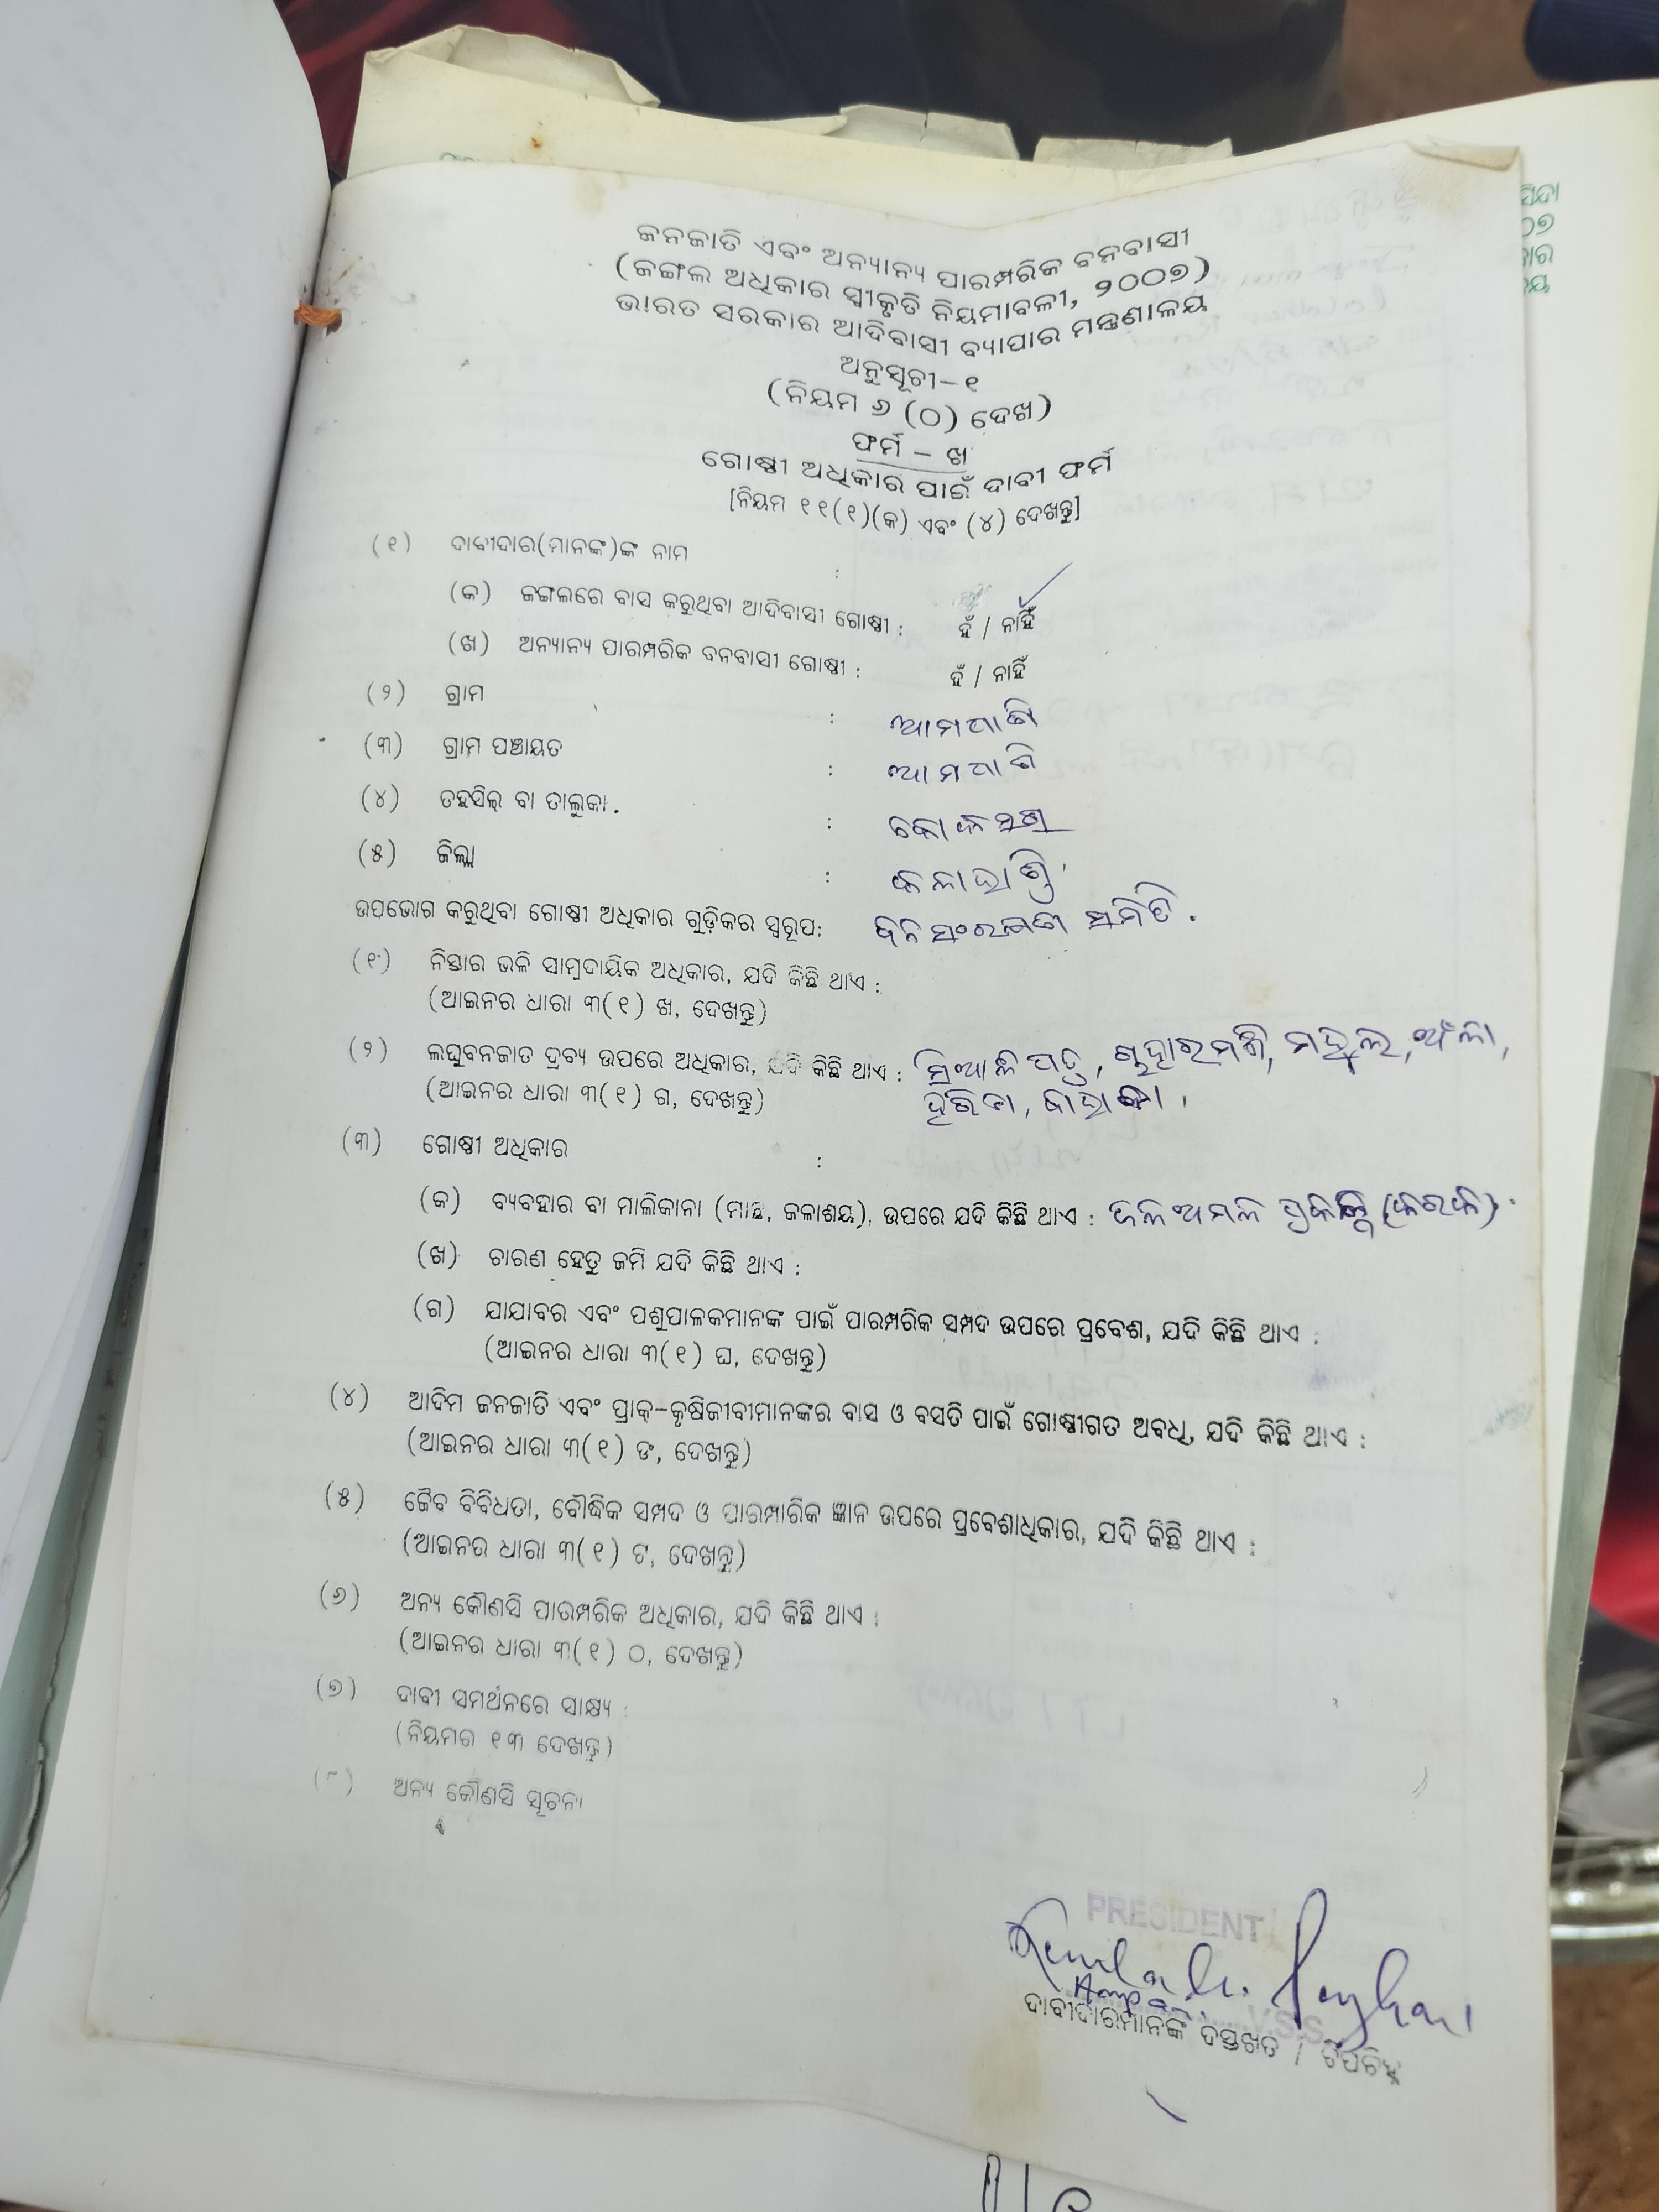 ଜନଜାତି ଏବଂ ଅନ୍ୟାନ୍ୟ ପାରମ୍ପରିକ ବନବାସୀ
(ଜଙ୍ଗଲ ଅଧିକାର ସ୍ୱୀକୃତି ନିୟମାବଳୀ, ୨୦୦୭)
ଭାରତ ସରକାର ଆଦିବାସୀ ବ୍ୟାପାର ମନ୍ତ୍ରଣାଳୟ
ଅନୁସୂଚୀ-୧
(ନିୟମ ୬ (ଠ) ଦେଖ)
ଫର୍ମ - ଖ
ଗୋଷ୍ଠୀ ଅଧିକାର ପାଇଁ ଦାବୀ ଫର୍ମ
[ନିୟମ ୧୧(୧)(କ) ଏବଂ (୪) ଦେଖନ୍ତୁ]
(୧) ଦାବୀଦାର(ମାନଙ୍କ)ଙ୍କ ନାମ :
(କ) ଜଙ୍ଗଲରେ ବାସ କରୁଥିବା ଆଦିବାସୀ ଗୋଷ୍ଠୀ : ହଁ / ନାହିଁ
(ଖ) ଅନ୍ୟାନ୍ୟ ପାରମ୍ପରିକ ବନବାସୀ ଗୋଷ୍ଠୀ : ହଁ / ନାହିଁ
(୨) ଗ୍ରାମ : ଆମପାଣି
(୩) ଗ୍ରାମ ପଞ୍ଚାୟତ : ଆମପାଣି
(୪) ତହସିଲ୍ ବା ତାଲୁକା. : କୋକସରା
(୫) ଜିଲ୍ଲା : କଳାହାଣ୍ଡି
ଉପଭୋଗ କରୁଥିବା ଗୋଷ୍ଠୀ ଅଧିକାର ଗୁଡ଼ିକର ସ୍ୱରୂପ: ବନ ସଂରକ୍ଷଣ ସମିତି.
(୧) ନିସ୍ତାର ଭଳି ସାମ୍ପ୍ରଦାୟିକ ଅଧିକାର, ଯଦି କିଛି ଥାଏ :
(ଆଇନର ଧାରା ୩(୧) ଖ, ଦେଖନ୍ତୁ)
(୨) ଲଘୁବନଜାତ ଦ୍ରବ୍ୟ ଉପରେ ଅଧିକାର, ଯଦି କିଛି ଥାଏ : ସିଆଳି ପତ୍ର, ମହୁଲ, ଅଁଳା,
(ଆଇନର ଧାରା ୩(୧) ଗ, ଦେଖନ୍ତୁ) ହରିଡା, ବାହାଡା
(୩) ଗୋଷ୍ଠୀ ଅଧିକାର :
(କ) ବ୍ୟବହାର ବା ମାଲିକାନା (ମାଛ, ଜଳାଶୟ), ଉପରେ ଯଦି କିଛି ଥାଏ : ଜଳଅମଳ
(ଖ) ଚାରଣ ହେତୁ ଜମି ଯଦି କିଛି ଥାଏ :
(ଗ) ଯାଯାବର ଏବଂ ପଶୁପାଳକମାନଙ୍କ ପାଇଁ ପାରମ୍ପରିକ ସମ୍ପଦ ଉପରେ ପ୍ରବେଶ, ଯଦି କିଛି ଥାଏ :
(ଆଇନର ଧାରା ୩(୧) ଘ, ଦେଖନ୍ତୁ)
(୪) ଆଦିମ ଜନଜାତି ଏବଂ ପ୍ରାକ୍-କୃଷିଜୀବୀମାନଙ୍କର ବାସ ଓ ବସତି ପାଇଁ ଗୋଷ୍ଠୀଗତ ଅବଧି, ଯଦି କିଛି ଥାଏ :
(ଆଇନର ଧାରା ୩(୧) ଙ, ଦେଖନ୍ତୁ)
(୫) ଜୈବ ବିବିଧତା, ବୌଦ୍ଧିକ ସମ୍ପଦ ଓ ପାରମ୍ପାରିକ ଜ୍ଞାନ ଉପରେ ପ୍ରବେଶାଧିକାର, ଯଦି କିଛି ଥାଏ :
(ଆଇନର ଧାରା ୩(୧) ଟ, ଦେଖନ୍ତୁ)
(୬) ଅନ୍ୟ କୌଣସି ପାରମ୍ପରିକ ଅଧିକାର, ଯଦି କିଛି ଥାଏ :
(ଆଇନର ଧାରା ୩(୧) ଠ, ଦେଖନ୍ତୁ)
(୭) ଦାବୀ ସମର୍ଥନରେ ସାକ୍ଷ୍ୟ :
(ନିୟମର ୧୩ ଦେଖନ୍ତୁ)
(୮) ଅନ୍ୟ କୌଣସି ସୂଚନା
PRESIDENT
V.S.S.
ଦାବୀଦାରମାନଙ୍କ ଦସ୍ତଖତ / ଟିପଚିହ୍ନ